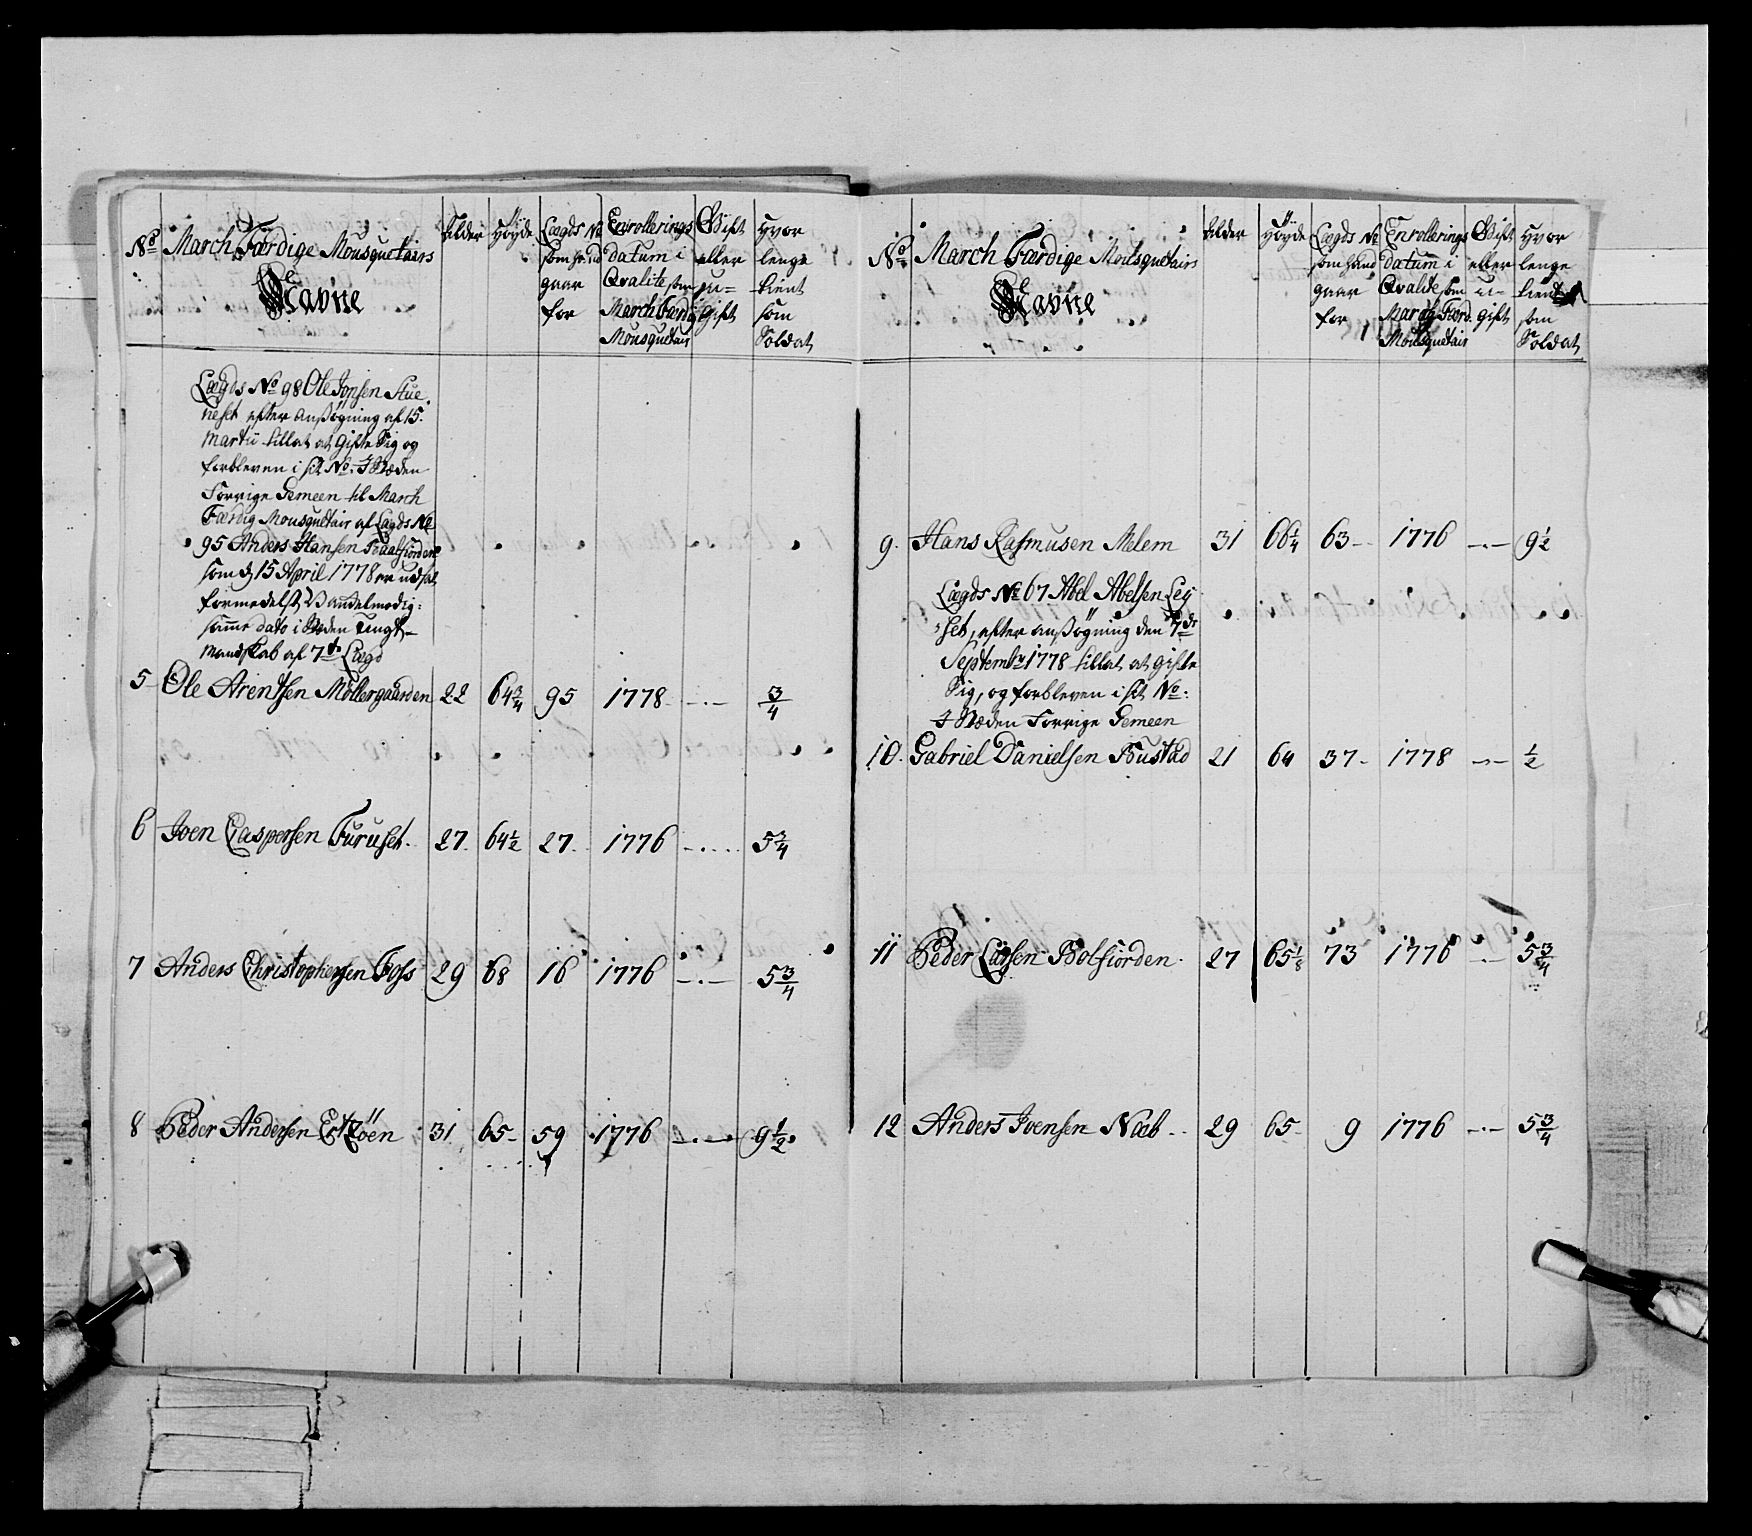 No March Færdige Mousquetairs Navne | Alder | Høyde | Lægds No som gaar for | Enrollerings datum i Qvalite som March Færdig Mousquetair | Gift eller u= gift | Hvor lenge tient som Soldat
Lægds No 98 Ole Jonsen Stue
neset efter Ansøgning af 15.
Martii tillat at Gifte Sig og
forbleven i sit No.
Forrige Gemeen til March
Færdig Mousquetair af Lægds No
95 Anders Hansen
som d 15 April 1778 er udsat
formedelst Vandelmodig:
samme dato i Steden Ungt-
mandskab af 7de Lægd
5 Ole Arentsen Mollergaarden 22 64 3/4 95 1778 -.- 3/4
6 Joen Caspersen Furuset. 27. 64 1/2 27. 1776 -.... 5 3/4
7 Anders Christophersen Foss 29 68 16 1776 -.- 5 3/4
8 Peder Andersen 31 65- 59 1776 -.- 9 1/2
No March Færdige Mousquetairs Navne | Alder | Høyde | Lægds No som hand gaar for | Enrollerings datum i Qvalite som March Færd. Mousquetair | Gift eller u- gift | Hvor lenge tient som Soldat
9. Hans Rasmusen Melem 31 66 1/4 63- 1776 -.- 9 1/2
Lægds No 67 Abel Abelsen Ley
=set, efter Ansøgning den 7de
Septembr 1778 tillat at Gifte
Sig, og forbleven i sit No:
Forrige Gemeen
10. Gabriel Danielsen Bustad 21 64 37- 1778 -.- 1/2
11 Peder Bolfiorden. 27 65 1/8 73 1776 -.- 5 3/4
12 Anders Joensen Næb.. 29 65- 9 1776 -.- 5 3/4